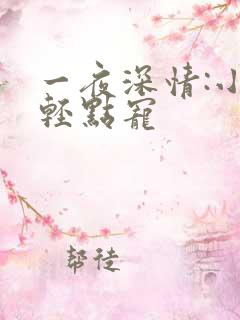 一夜深情:小
輕點寵
幫徒